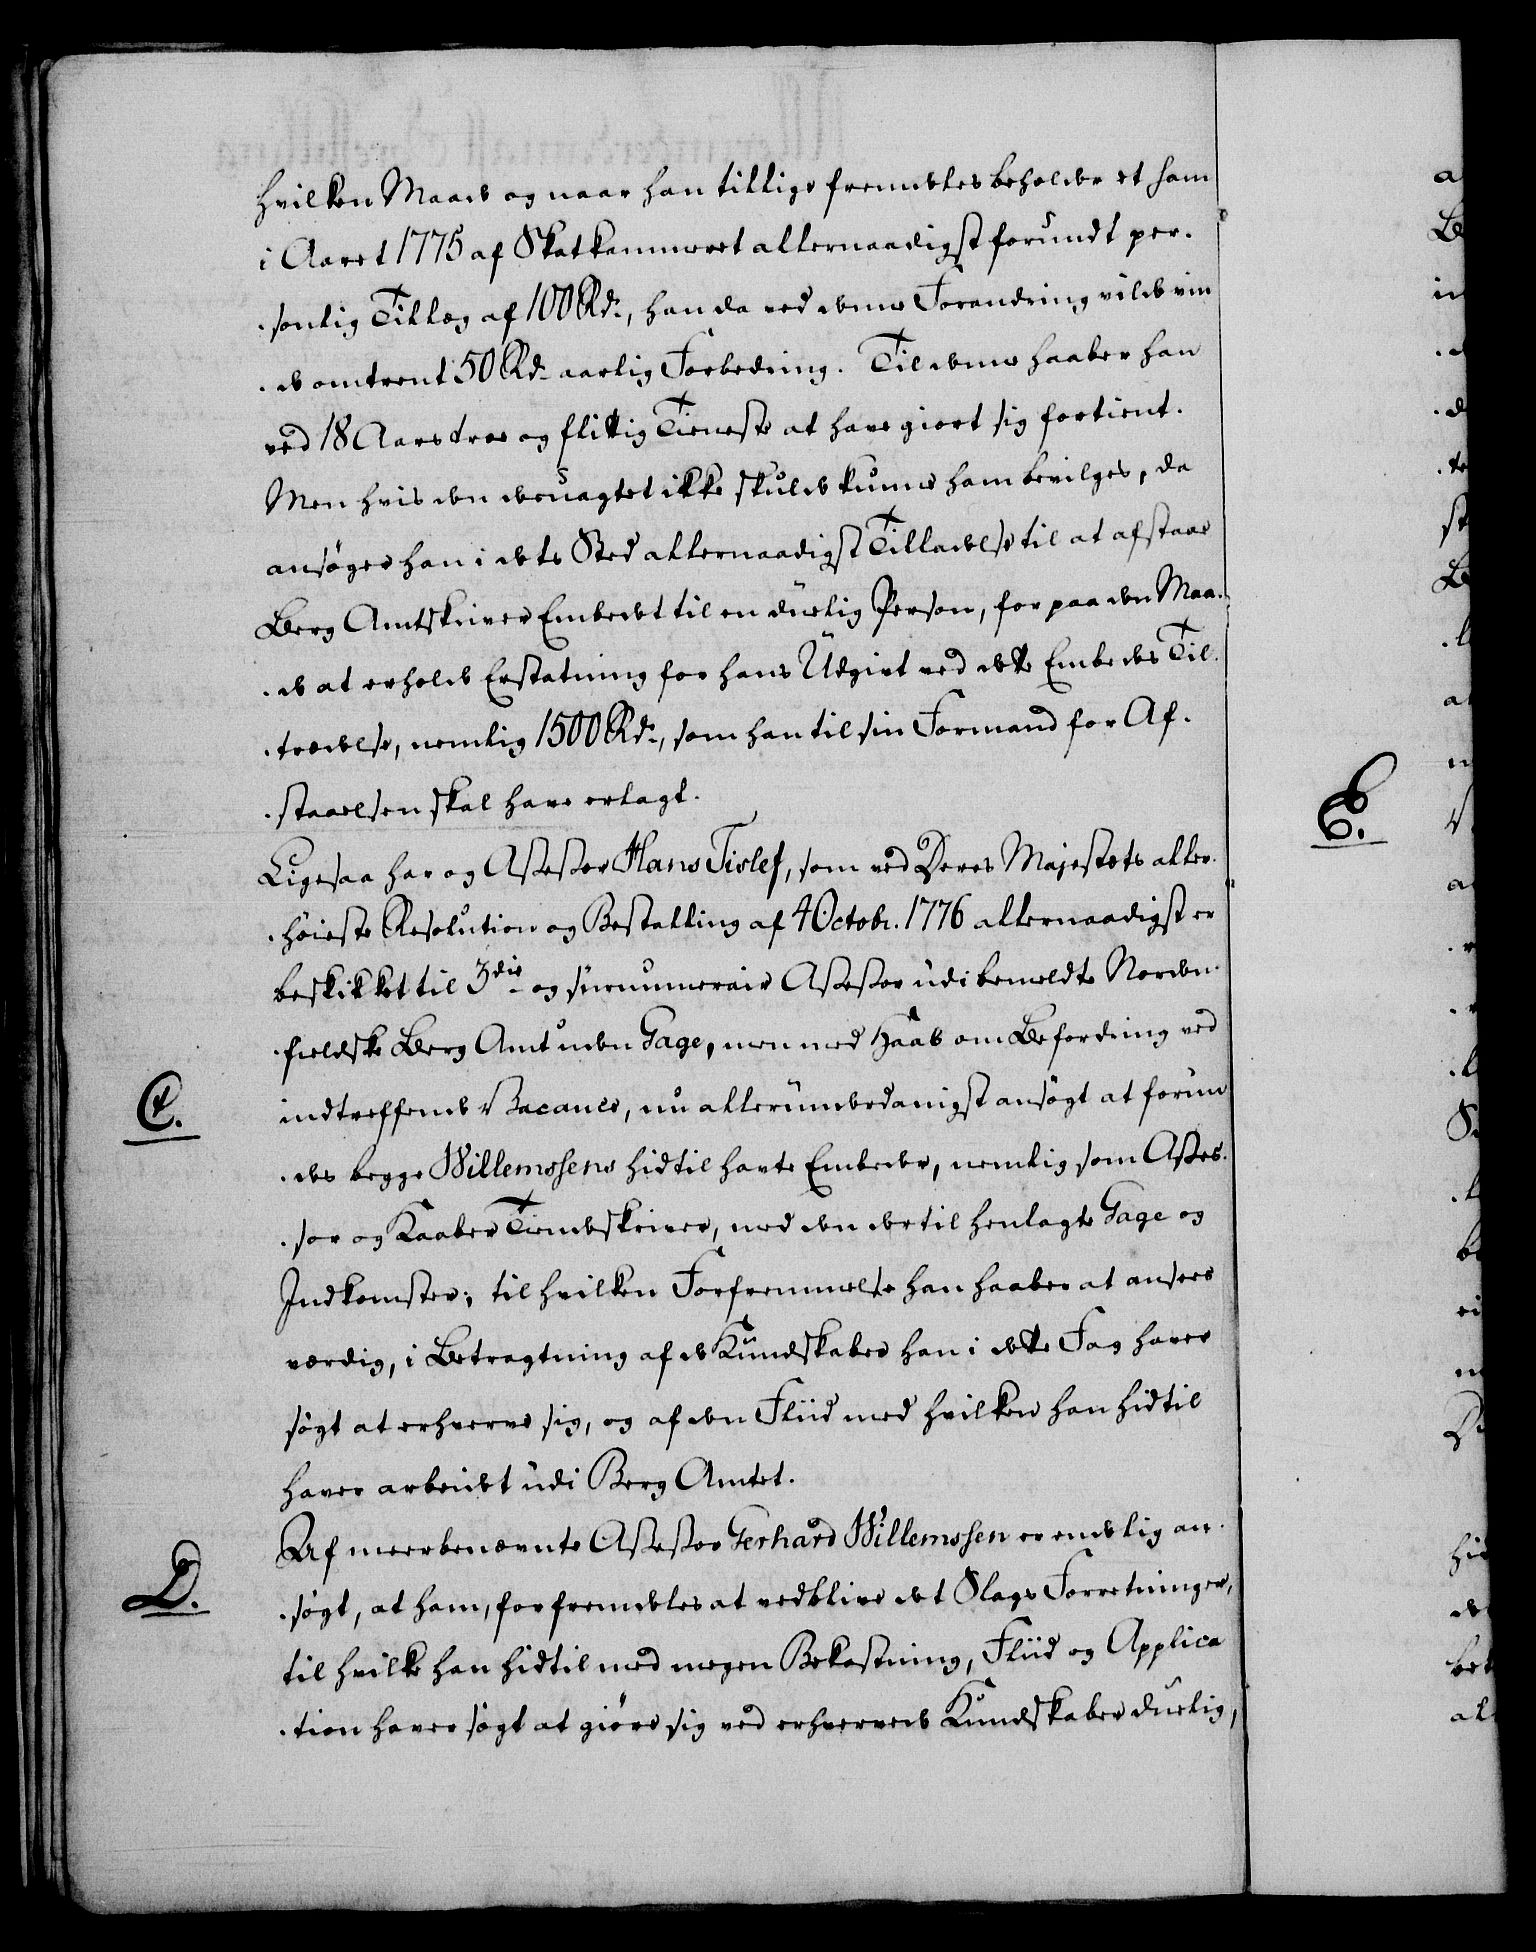 hvilken Maade og naar han tillige fremdeles beholder et ham
i Aaret 1775 af Skatkammeret allernaadigst forundt per-
-sonlig Tillæg af 100 Rd., han da ved denne Forandring vilde vin
-de omtrent 50 Rd. aarlig Forbedring. Til denne haaber han
ved 18 Aars troe og flittig Tieneste at have giort sig fortient.
Men hvis den deruagtet ikke skulde kunne ham bevilges, da
ansøger han i dets Sted allernaadigst Tilladelse til at afstaae
Berg Amtskriver Embedet til en duelig Person, for paa den Maa-
-de at erholde Erstatning for hans Udgivt ved dette Embedes Til-
-trædelse, nemlig 1500 Rd., som han til sin Formand for Af-
-staaelsen skal have erlagt.
Ligesaa har og Assessor Hans Fislef, som ved Deres Majestæts aller-
-høieste Resolution og Bestalling af 4 Octobr. 1776 allernaadigst er
beskikket til 3die og surnumerair Assessor udi bemeldte Norden-
-fieldske Berg Amt uden Gage, men med Haab om Befordring ved
C.
indtreffende Vacance, nu allerunderdanigst ansøgt at forun
-des begge Willemssens hidtil havte Embeder, nemlig som Asses-
-sor og Kaaber Tiendeskriver, med den dertil henlagte Gage og
Indkomster; til hvilken Forfremmelse han haaber at ansees
værdig, i Betragtning af de Kundskaber han i dette Fag haver
søgt at erhverve sig, og af den Fliid med hvilken han hidtil
haver arbeidet udi Berg Amtet.
D.
Af meerbenævnte Assessor Gerhard Willemssen er endelig an-
-søgt, at ham, for fremdeles at vedblive det Slags Forretninger,
til hvilke han hidtil med megen Bekostning, Fliid og Applica
-tion haver søgt at giøre sig ved erhvervede Kundskaber duelig,
E.